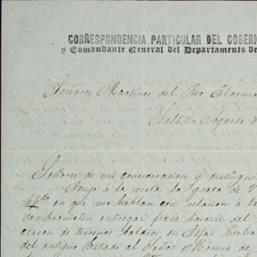 CORRESPONDENCIA PARTICULAR DEL GOBER
y Comandante General del Departamento de
Señores Martinez del Rio Herma
Saltillo Agosto
Señores de mi consideracion y distingui
Tengo á la vista la grata
en que me hablan con relacion á la
comprometen entregar para
cesion de terrenos baldios, en
del antiguo estado al Señor